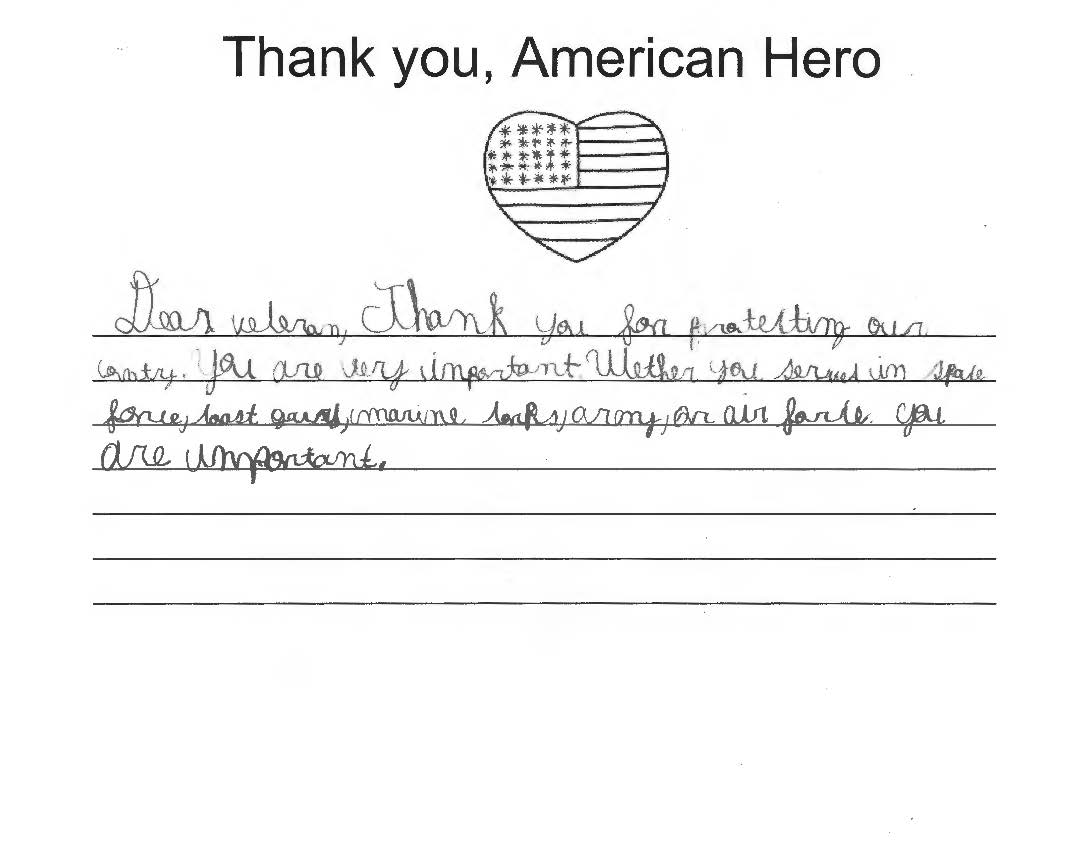 Thank you, American Hero
Dear veteran, Thank you for protecting our
contry. You are very important. Wether you served in space
force, coast guard, marine corks, army, or air force. You
are important.